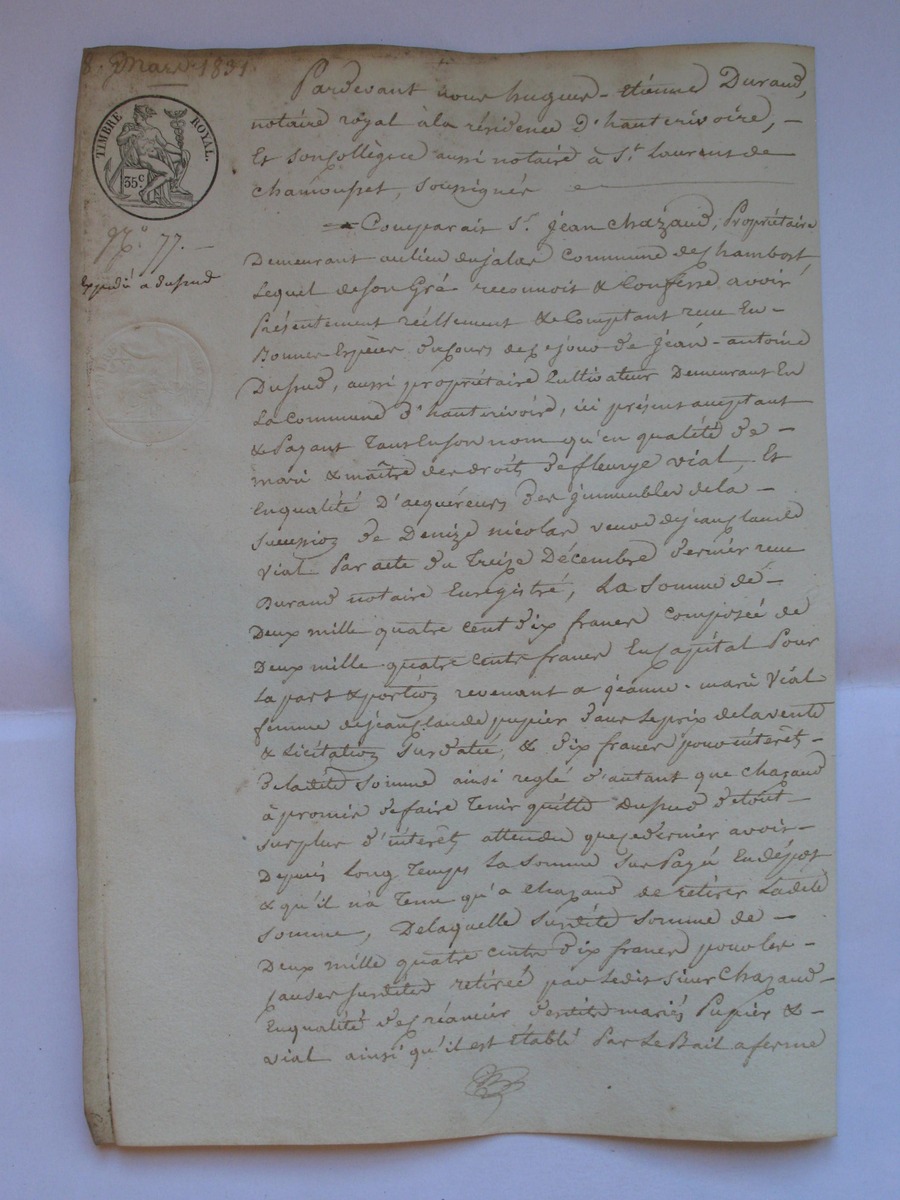 8. Mars 1831.
TIMBRE ROYAL.
35c
N.o 77.
Expédié a dusud
Pardevant nous hugues-Etienne Durand,
notaire royal à la résidence D'hauterivoire,
Et son Collègue aussi notaire à St. Laurent de
Chamousset, soussignés
Comparait Sr. jean Chazaud, Propriétaire
Demeurant au lieu du jalas Commune de Chambost
Lequel de son Gré reconnoit & Confesse avoir
Présentement réellement & Comptant recu En
Bonnes Espèces du Cours de ce jour de jean-antoine
Dusud, aussi propriétaire Cultivateur Demeurant En
La Commune D'hauterivoire, ici présent acceptant
& Payant Tant En son nom qu'en qualité de
mari & maître des droits de fleurye vial, Et
En qualité D'acquéreurs des jmmeubles de la
succession de Denize nicolas veuve de jean Claude
Vial Par acte du Treize Décembre dernier recu
Durand notaire Enregistré, La somme de
Deux mille quatre cent dix francs composée de
Deux mille quatre cents francs En Capital Pour
La part & portion revenant a jeanne-marie Vial
femme de jean Claude pupier dans Le prix de la vente
& Licitation susdatée, & dix francs pour intérêts
De ladite somme ainsi reglé d'autant que chazaud
à promis de faire Tenir quitte Dusud de tout
surplus d'intérêts attendu que ce dernier avoit
Depuis Long Temps La somme sus Payée En dépot
& qu'il n'a Tenu qu'a chazaud de retirer Ladite
somme, De laquelle susdite somme de
Deux mille quatre cents dix francs pour les
causes susdites retirée par Ledit sieur Chazaud
En qualité de Créancier desdits mariés Pupier &
vial ainsi qu'il est Etabli Par Le Bail a ferme